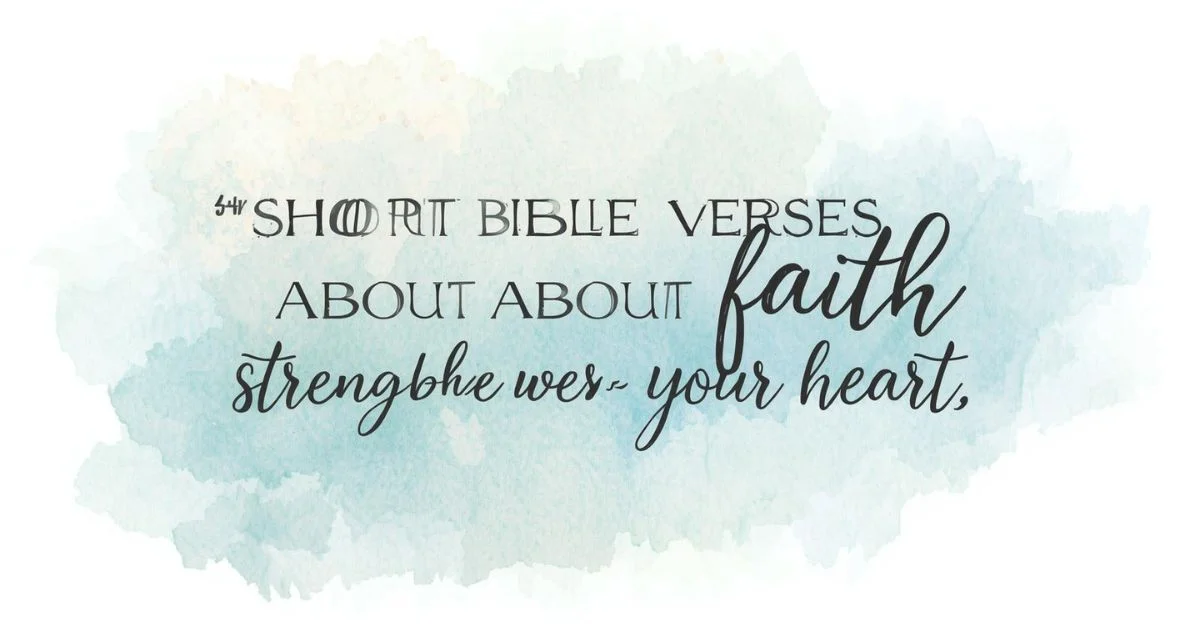 BIBLLE VERSES
ABOUT ABOUT faith
strengbhe wes~ your heart,